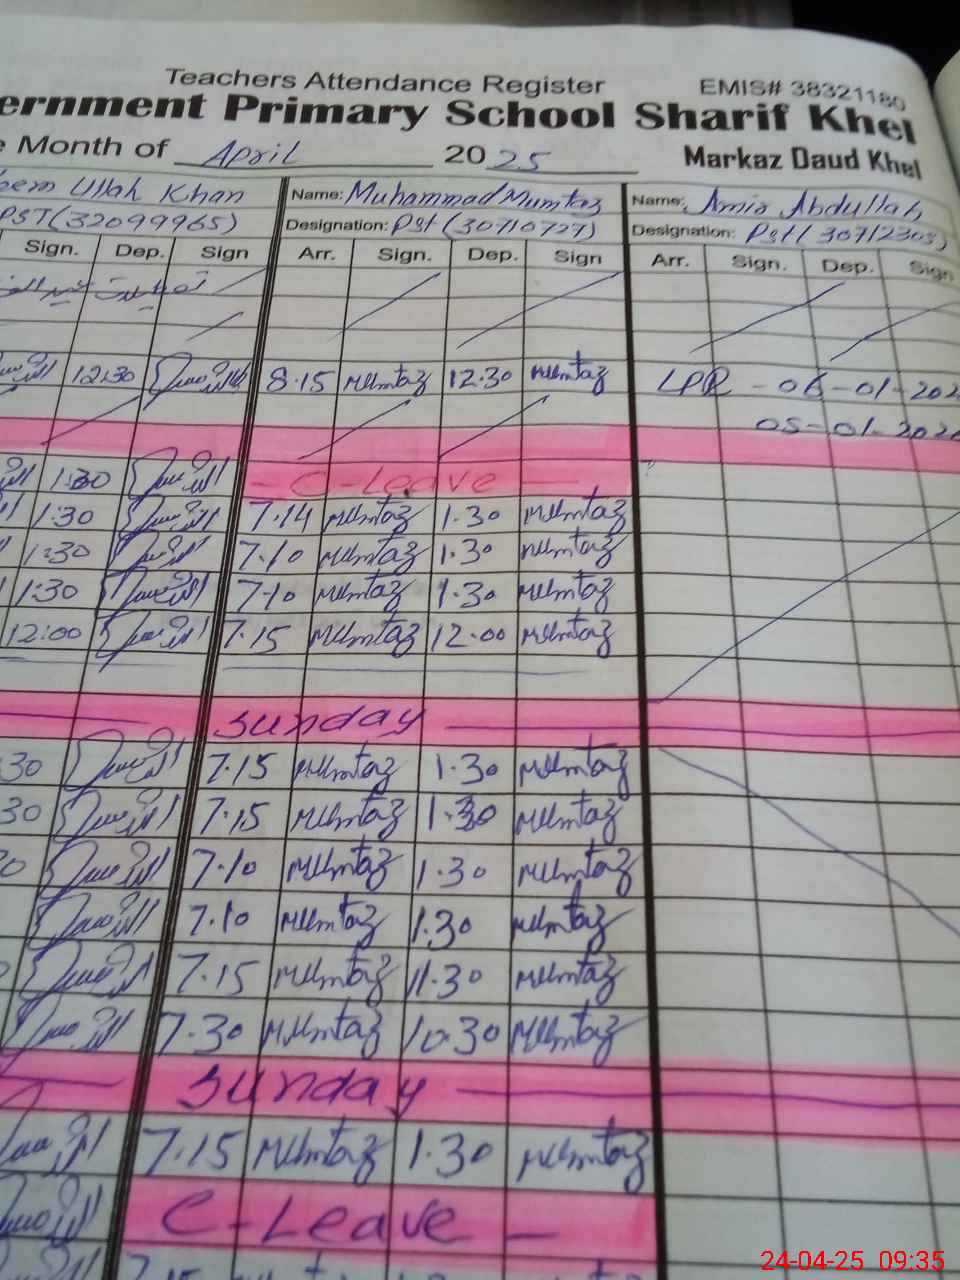 Teachers Attendance Register EMIS# 38321180
ernment Primary School Sharif Khel
e Month of April 2025 Markaz Daud Khel
eem Ullah Khan Name: Muhammad Mumtaz Name: Amir Abdullah
PST (32099965) Designation: Pst (30710727) Designation: Pst (30712303)
Sign. Dep. Sign Arr. Sign. Dep. Sign Arr. Sign. Dep. Sign
12:30 8.15 Mumtaz 12.30 Mumtaz LPR - 06-01-202
05-01-202
1:30 - C-Leave -
1:30 7.14 Mumtaz 1.30 Mumtaz
1:30 7.10 Mumtaz 1.30 Mumtaz
1:30 7.10 Mumtaz 1.30 Mumtaz
12:00 7.15 Mumtaz 12.00 Mumtaz
Sunday
30 7.15 Mumtaz 1.30 Mumtaz
30 7.15 Mumtaz 1.30 Mumtaz
0 7.10 Mumtaz 1.30 Mumtaz
7.10 Mumtaz 1.30 Mumtaz
7.15 Mumtaz 11.30 Mumtaz
7.30 Mumtaz 10.30 Mumtaz
Sunday
7.15 Mumtaz 1.30 Mumtaz
C-Leave -
24-04-25 09:35